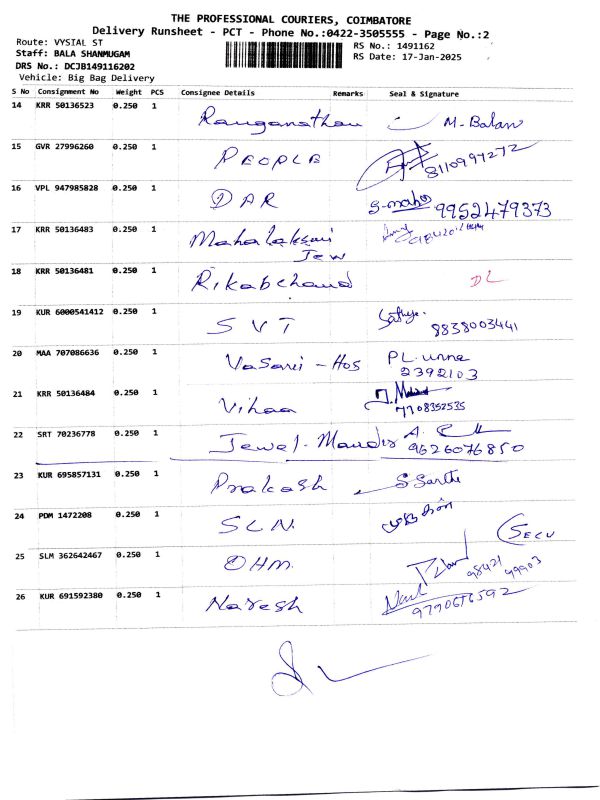 THE PROFESSIONAL COURIERS, COIMBATORE
Delivery Runsheet - PCT - Phone No.:0422-3505555 - Page No.:2
Route: VYSIAL ST RS No.: 1491162
Staff: BALA SHANMUGAM RS Date: 17-Jan-2025
DRS No.: DCJB149116202
Vehicle: Big Bag Delivery
S No Consignment No Weight PCS Consignee Details Remarks Seal & Signature
14 KRR 50136523 0.250 1 Ranganathan M-Balan
15 GVR 27996260 0.250 1 PEOPLE 8110997272
16 VPL 947985828 0.250 1 DAR 9952479373
17 KRR 50136483 0.250 1 Mahalaksmi
Jew
18 KRR 50136481 0.250 1 Rikabchand DL
19 KUR 6000541412 0.250 1 SVT Sathya.
8838003441
20 MAA 707086636 0.250 1 Vasani - Hos PL. unna
2392103
21 KRR 50136484 0.250 1 Vihaa
7708352535
22 SRT 70236778 0.250 1 Jewel-Mandir A.
9626076850
23 KUR 695857131 0.250 1 Prakash S. Sarthi
24 PDM 1472208 0.250 1 SLN.
25 SLM 362642467 0.250 1 OHM. 98421 49903
26 KUR 691592380 0.250 1 Naresh
9790616592